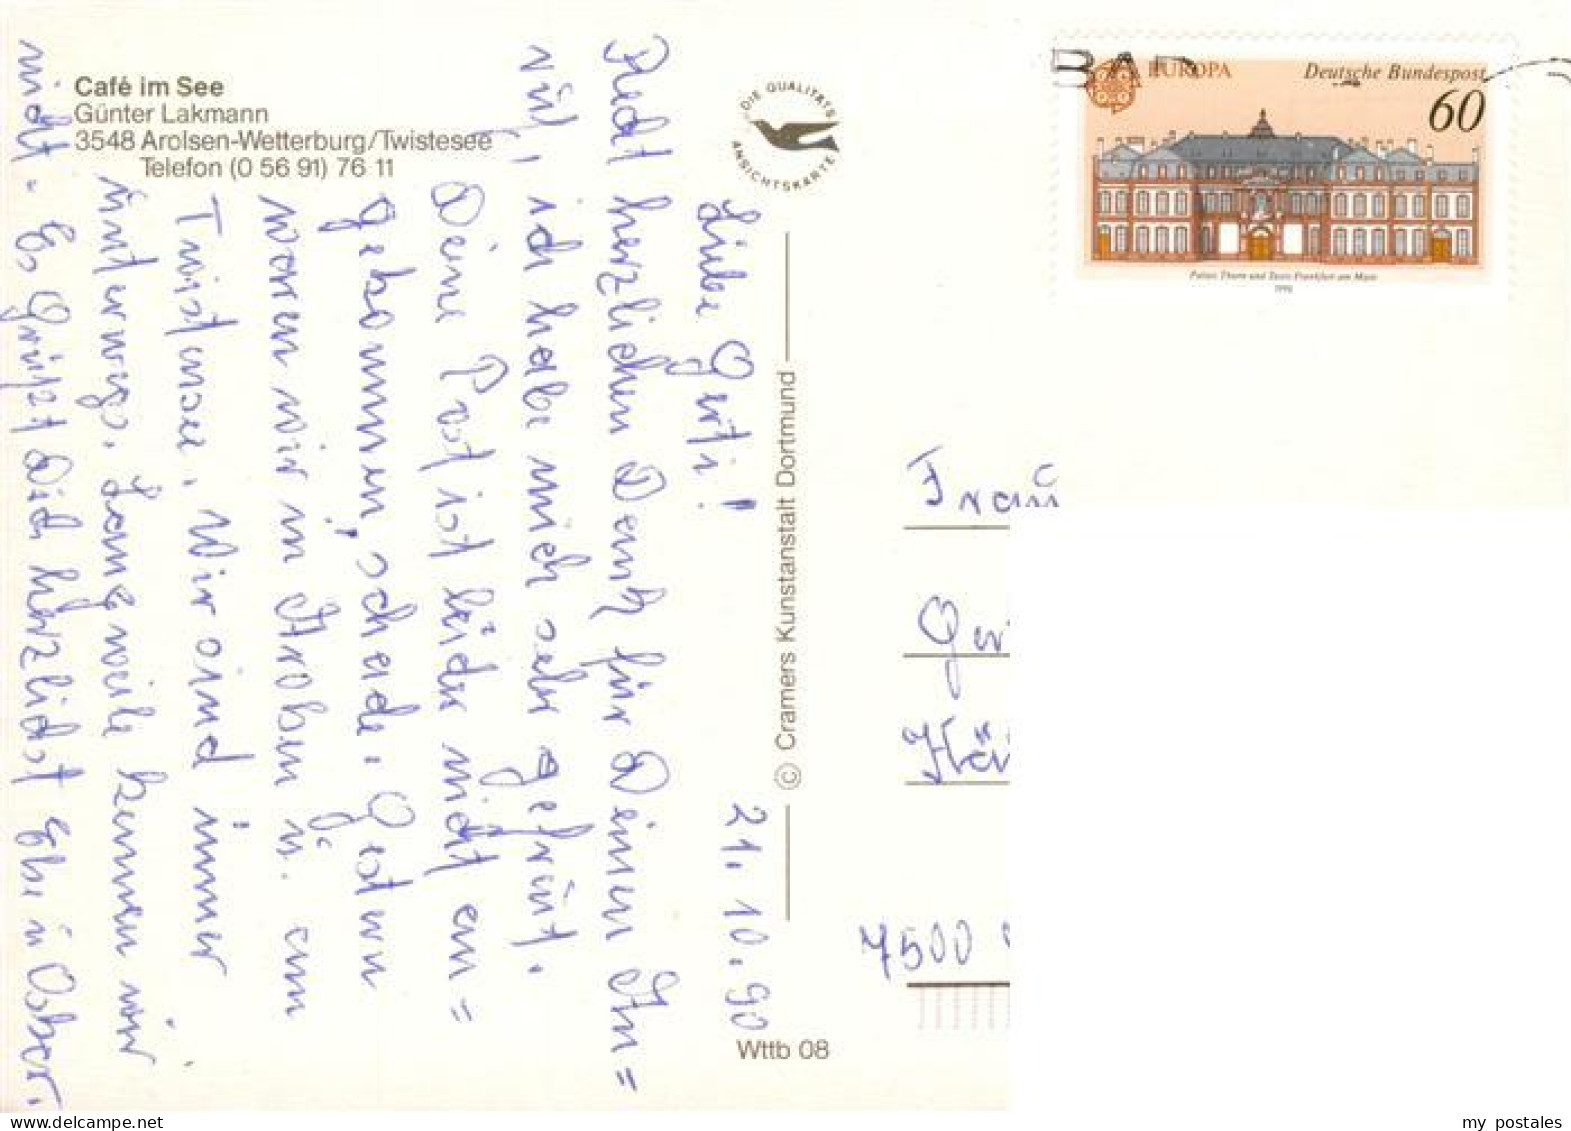 Café im See
Günter Lakmann
3548 Arolsen-Wetterburg/Twistesee
Telefon (0 56 91) 76 11
DIE QUALITÄTS
ANSICHTSKARTE
EUROPA
Deutsche Bundespost
60
Palais Thurn und Taxis Frankfurt am Main
1990
BAD
Liebe Gerti!
21.10.90
Recht herzlichen Dank für Deinen An=
ruf, ich habe mich sehr gefreut.
Deine Post ist leider nicht an=
gekommen, schade. Gestern
waren wir in Arolsen u. am
Twistesee. Wir sind immer
unterwegs. Langweile kennen wir
nicht. Es grüßt Dich herzlichst Ebi u. Oskar.
© Cramers Kunstanstalt Dortmund
Wttb 08
Frau
7500
my postales